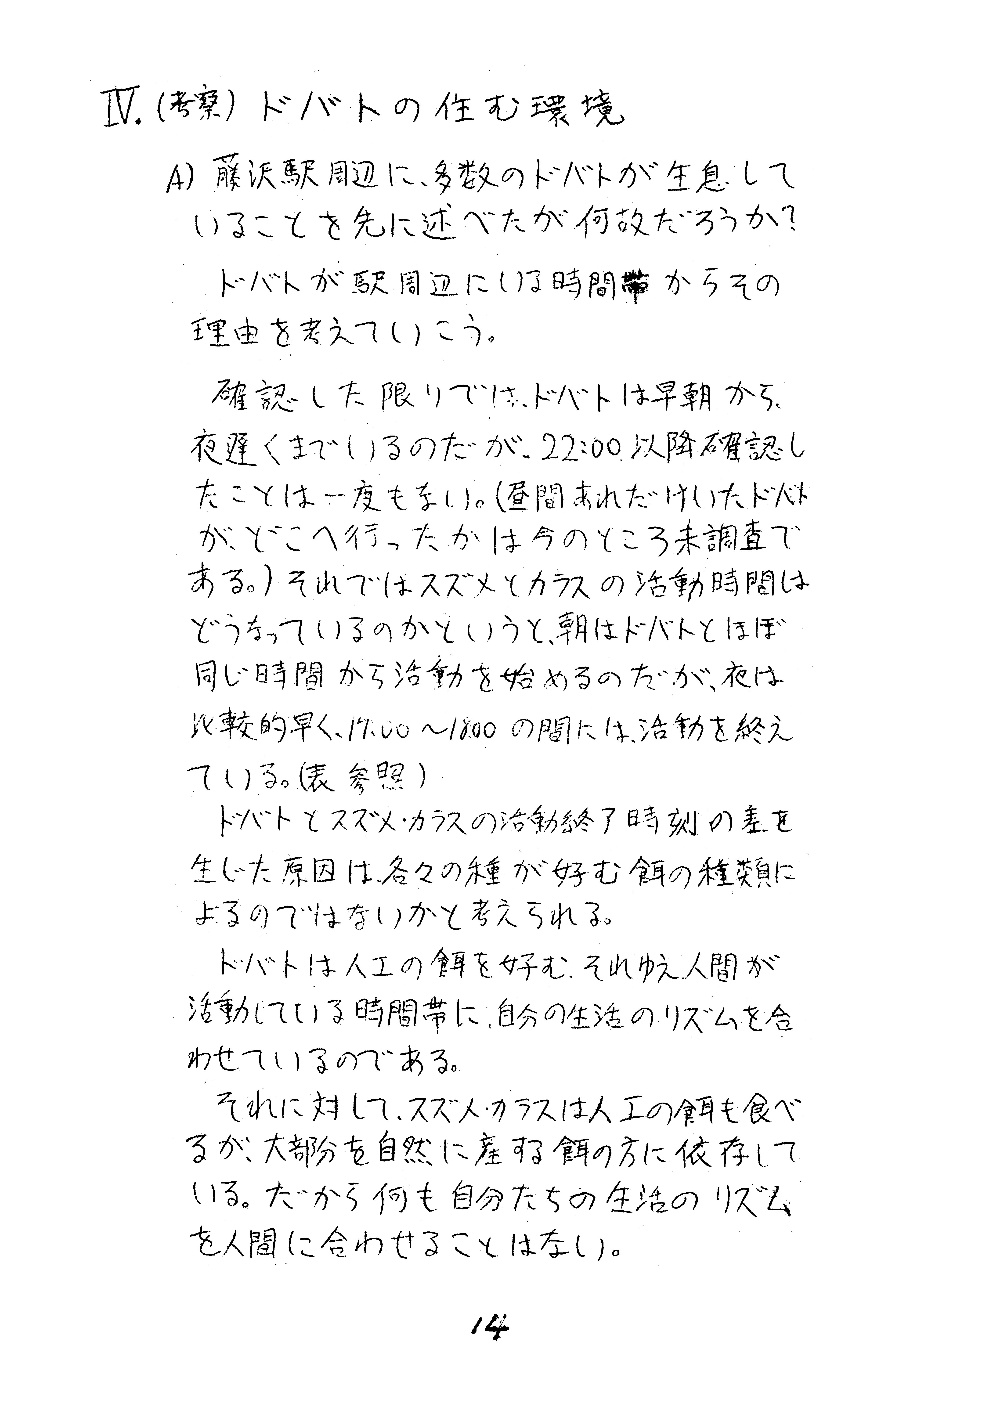 IV.(考察)ドバトの住む環境
A)藤沢駅周辺に、多数のドバトが生息して
いることを先に述べたが何故だろうか?
ドバトが駅周辺にいる時間帯からその
理由を考えていこう。
確認した限りでは、ドバトは早朝から、
夜遅くまでいるのだが、22:00以降確認し
たことは一度もない。(昼間あれだけいたドバト
が、どこへ行ったかは今のところ未調査で
ある。)それではスズメとカラスの活動時間は
どうなっているのかというと、朝はドバトとほぼ
同じ時間から活動を始めるのだが、夜は
比較的早く、17:00〜18:00の間には、活動を終え
ている。(表参照)
ドバトとスズメ・カラスの活動終了時刻の差を
生じた原因は、各々の種が好む餌の種類に
よるのではないかと考えられる。
ドバトは人工の餌を好む、それゆえ人間が
活動している時間帯に、自分の生活のリズムを合
わせているのである。
それに対して、スズメ・カラスは人工の餌も食べ
るが、大部分を自然に産する餌の方に依存して
いる。だから何も自分たちの生活のリズム
を人間に合わせることはない。
14